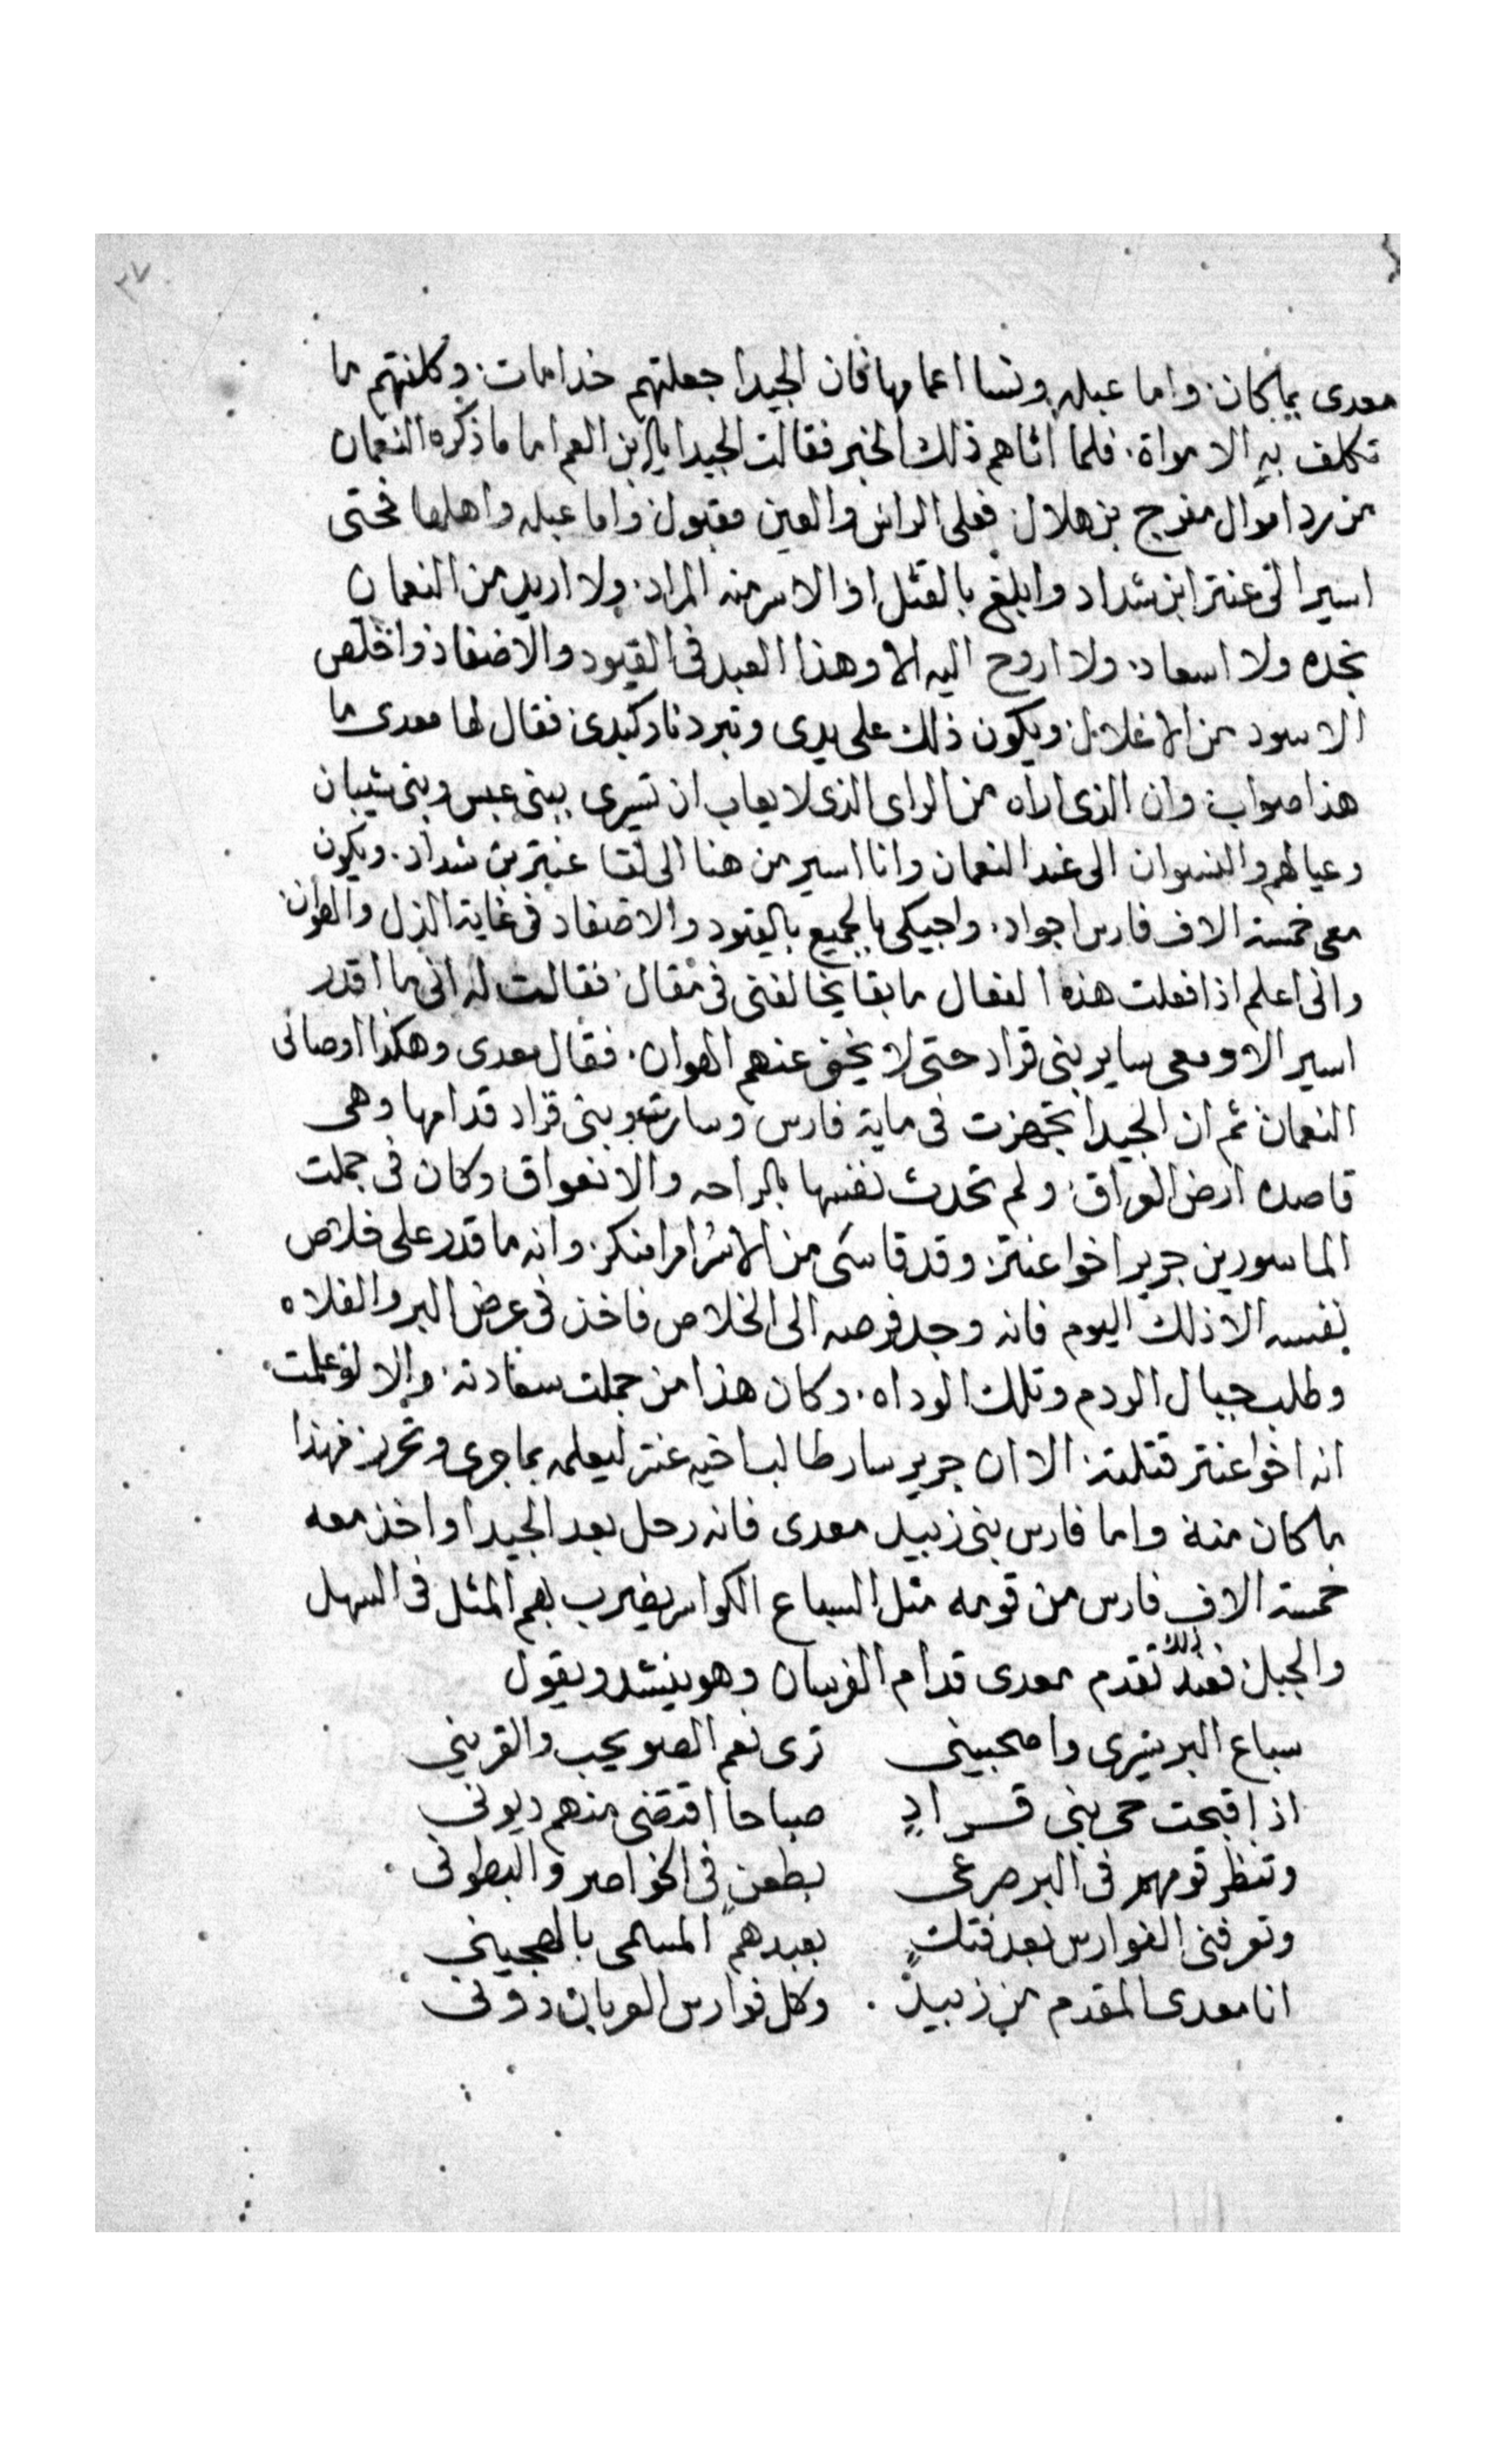 ٣٧
معدى بما كان. واما عبله ونسا اعمامها فان الجيدا جعلتهم خدامات. وكلفتهم ما
تكلف به الامواة. فلما اتاهم ذلك الخبر فقالت الجيدا يا ابن العم اما ما ذكره النعمان
من رد اموال مفرج بن هلال. فعلى الراس والعين مقبول واما عبله واهلها فحتى
اسير الى عنتر ابن شداد وابلغ بالقتل او الاسر منه المراد. ولا اريد من النعمان
نجده ولا اسعاد. ولا اروح اليه الا وهذا العبد فى القيود والاصفاد واخلص
الاسود من الاغلال. ويكون ذلك على يدى وتبرد نار كبدى. فقال لها معدى ما
هذا صواب. وان الذى اراه من الراى الذى لا يعاب ان تسيرى ببنى عبس وبنى شيبان
وعيالهم والنسوان الى عند النعمان وانا اسير من هنا الى لقا عنتر بن شداد. ويكون
معى خمسة الاف فارس اجواد. واجيكى بالجميع بالقيود والاصفاد فى غاية الذل والهوان.
وانى اعلم اذا فعلت هذه الفعال ما بقا يخالفنى فى مقال. فقالت له انى ما اقدر
اسير الا ومعى ساير بنى قراد حتى لا يخف عنهم الهوان. فقال معدى وهكذا اوصانى
النعمان ثم ان الجيدا تجهزت فى ماية فارس وسارت وبنى قراد قدامها وهى
قاصده ارض العراق. ولم تحدث نفسها بالراحه والانعواق وكان فى جملت
الماسورين جرير اخوا عنتر. وقد قاسى من الاسر امرا منكر. وانه ما قدر على خلاص
نفسه الا ذلك اليوم فانه وجد فرصه الى الخلاص فاخذ فى عرض البر والفلاه
وطلب جبال الردم وتلك الوداه. وكان هذا من جملت سعادته. والا لو علمت
انه اخوا عنتر قتلته. الا ان جرير سار طالب اخيه عنتر ليعلمه بما جرى وتحرر فهذا
ما كان منه واما فارس بنى زبيد معدى فانه رحل بعد الجيدا واخذ معه
خمسة الاف فارس من قومه مثل السباع الكواسر يضرب بهم المثل فى السهل
والجبل. فعند ذلك تقدم معدى قدام الفرسان وهو ينشد ويقول
سباع البر سيرى واصحبينى    ترى نعم الصويحب والقرينى
اذا قبحت حى بنى قراد    صباحا اقتضى منهم ديونى
وتنظر قومهم فى البر صرعى    بطعن فى الخواصر والبطونى
وتعرفنى الفوارس بعد فتك    بعبدهم المسمى بالهجينى
انا معدى المقدم من زبيد    وكل فوارس العربان دونى